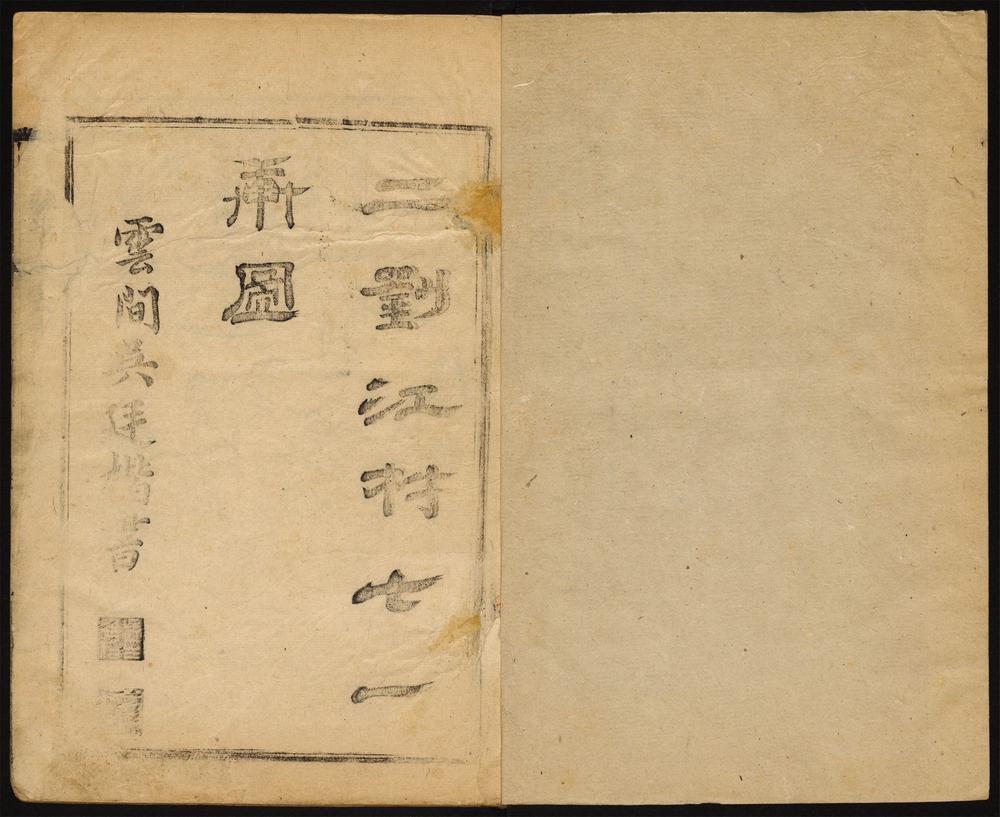 二劃江村七一
圖
雲間吳廷楷書